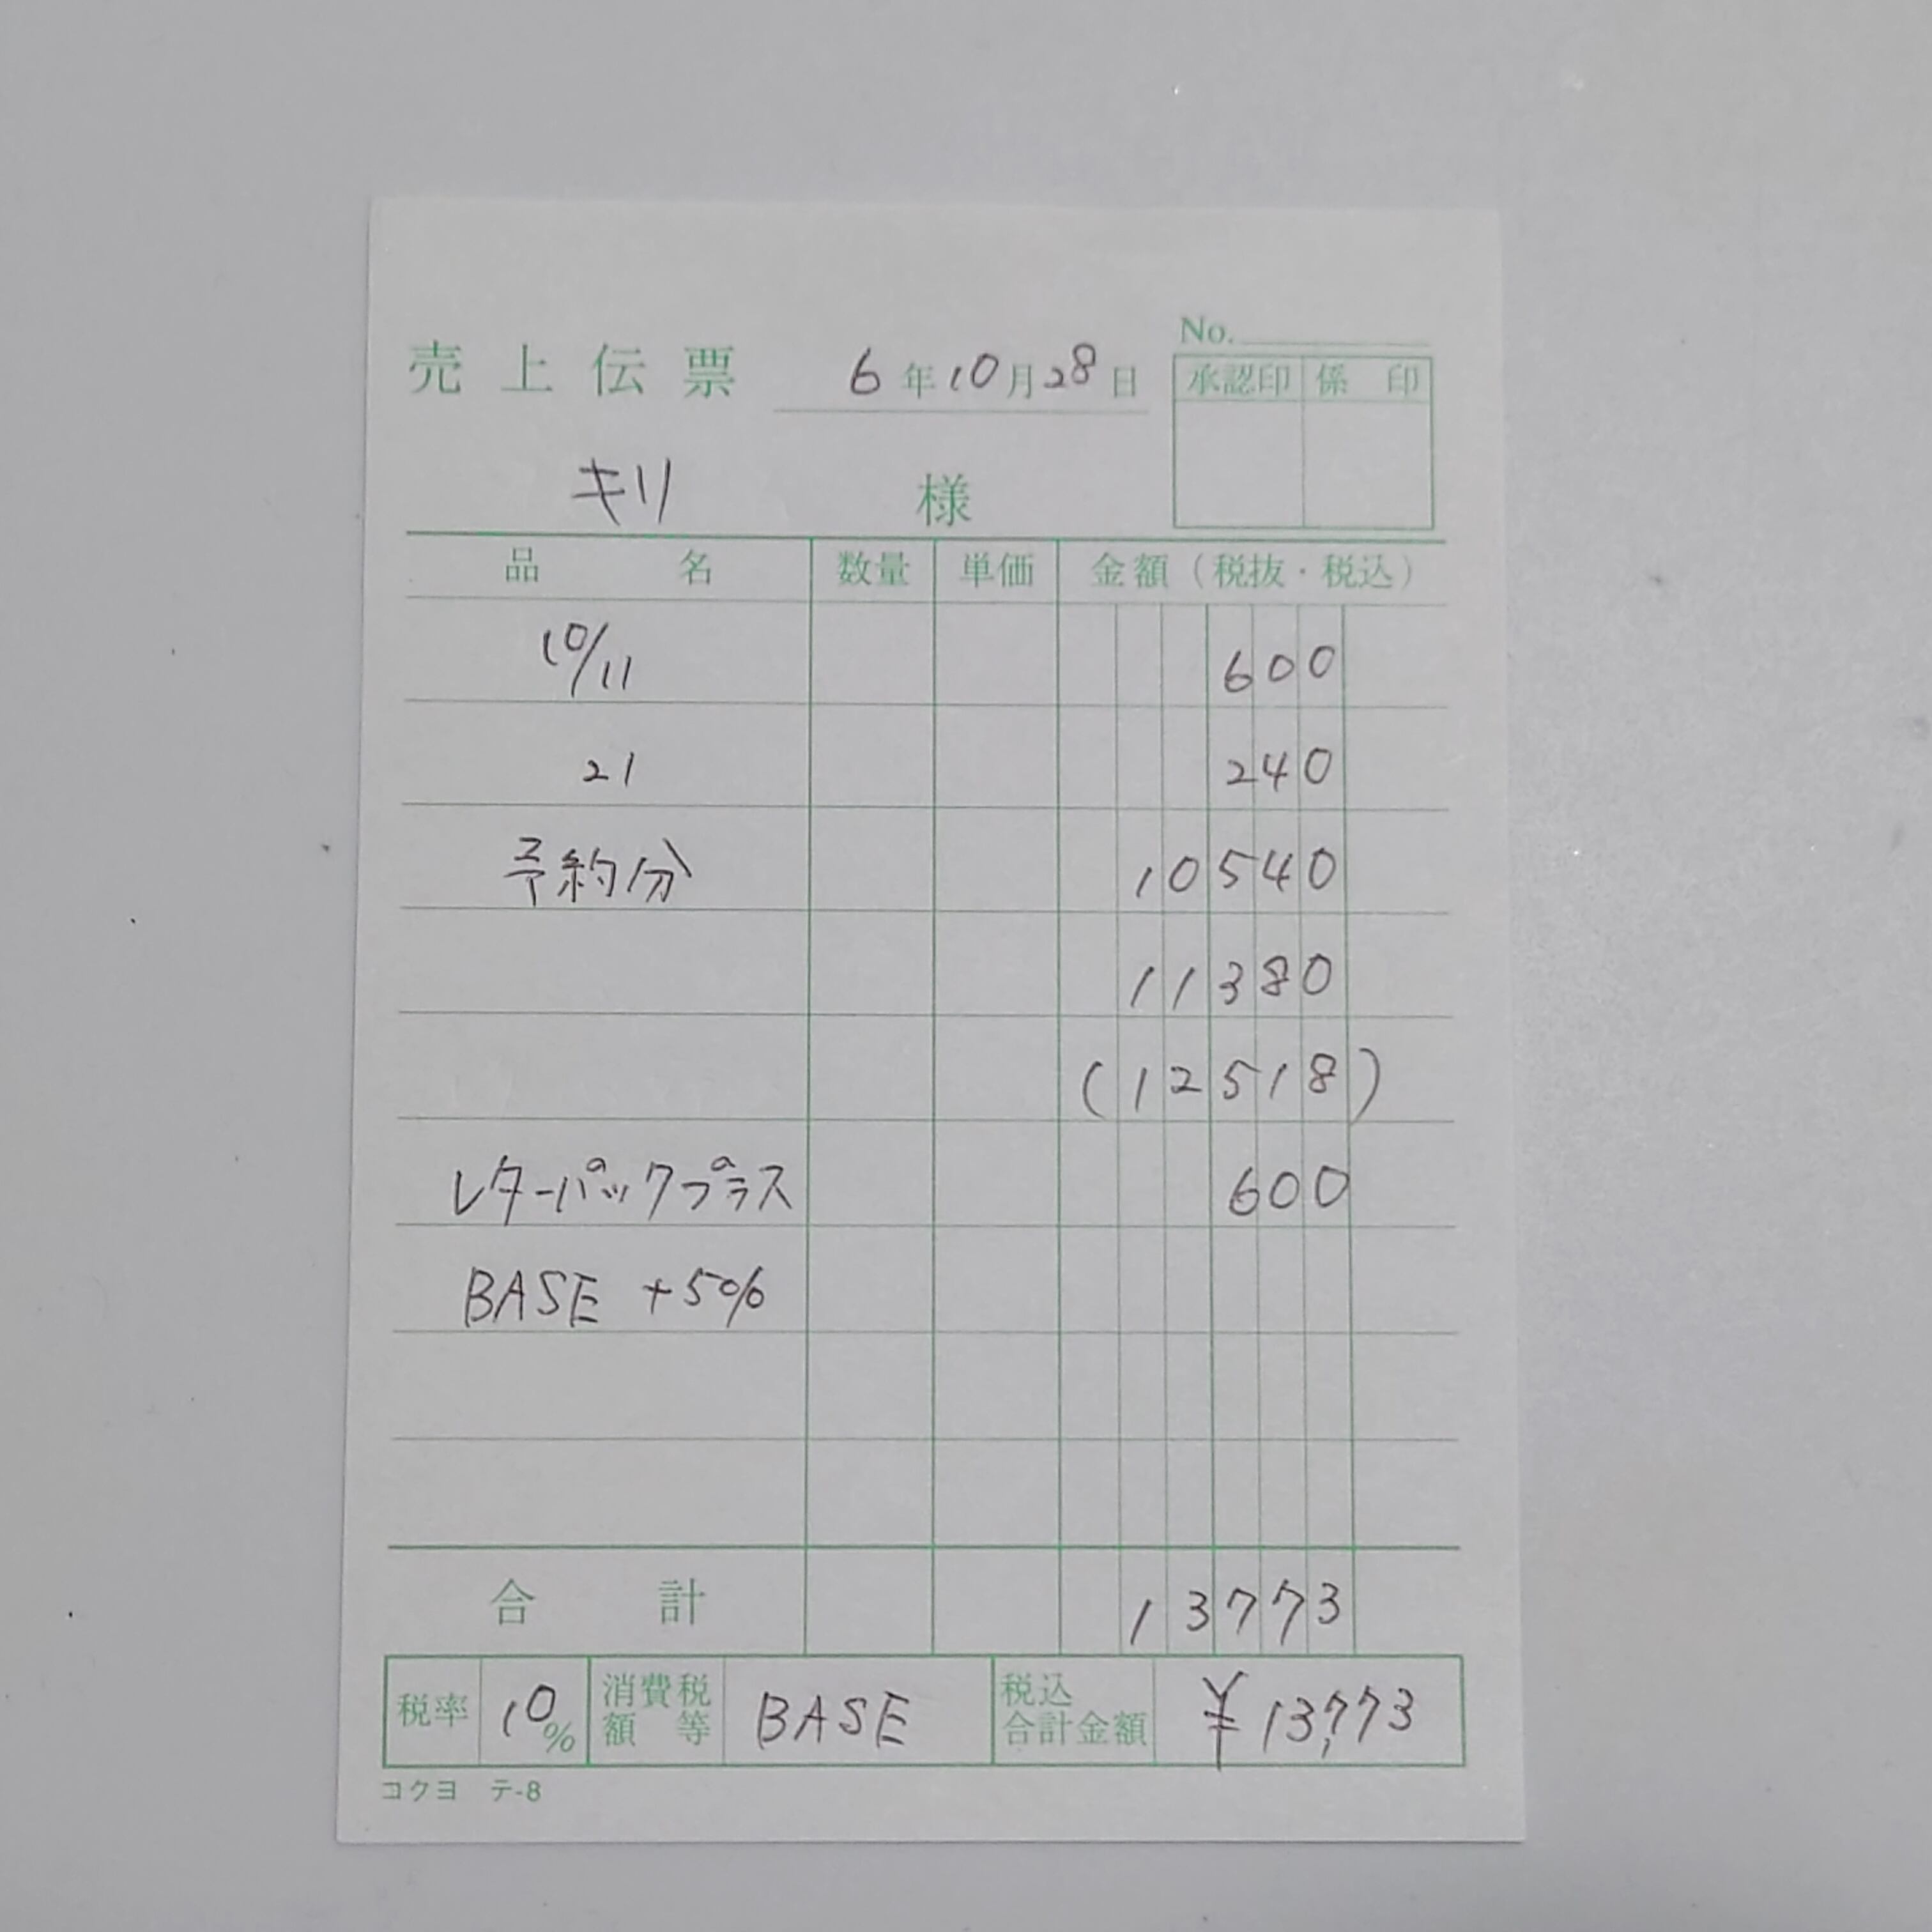 No.
売上伝票 6年10月28日
承認印 係印
キリ 様
品名 数量 単価 金額(税抜・税込)
10/11 600
21 240
予約分 10540
11380
(12518)
レターパックプラス 600
BASE +5%
合計 13773
税率 10% 消費税額等 BASE 税込合計金額 ¥13,773
コクヨ テ-8